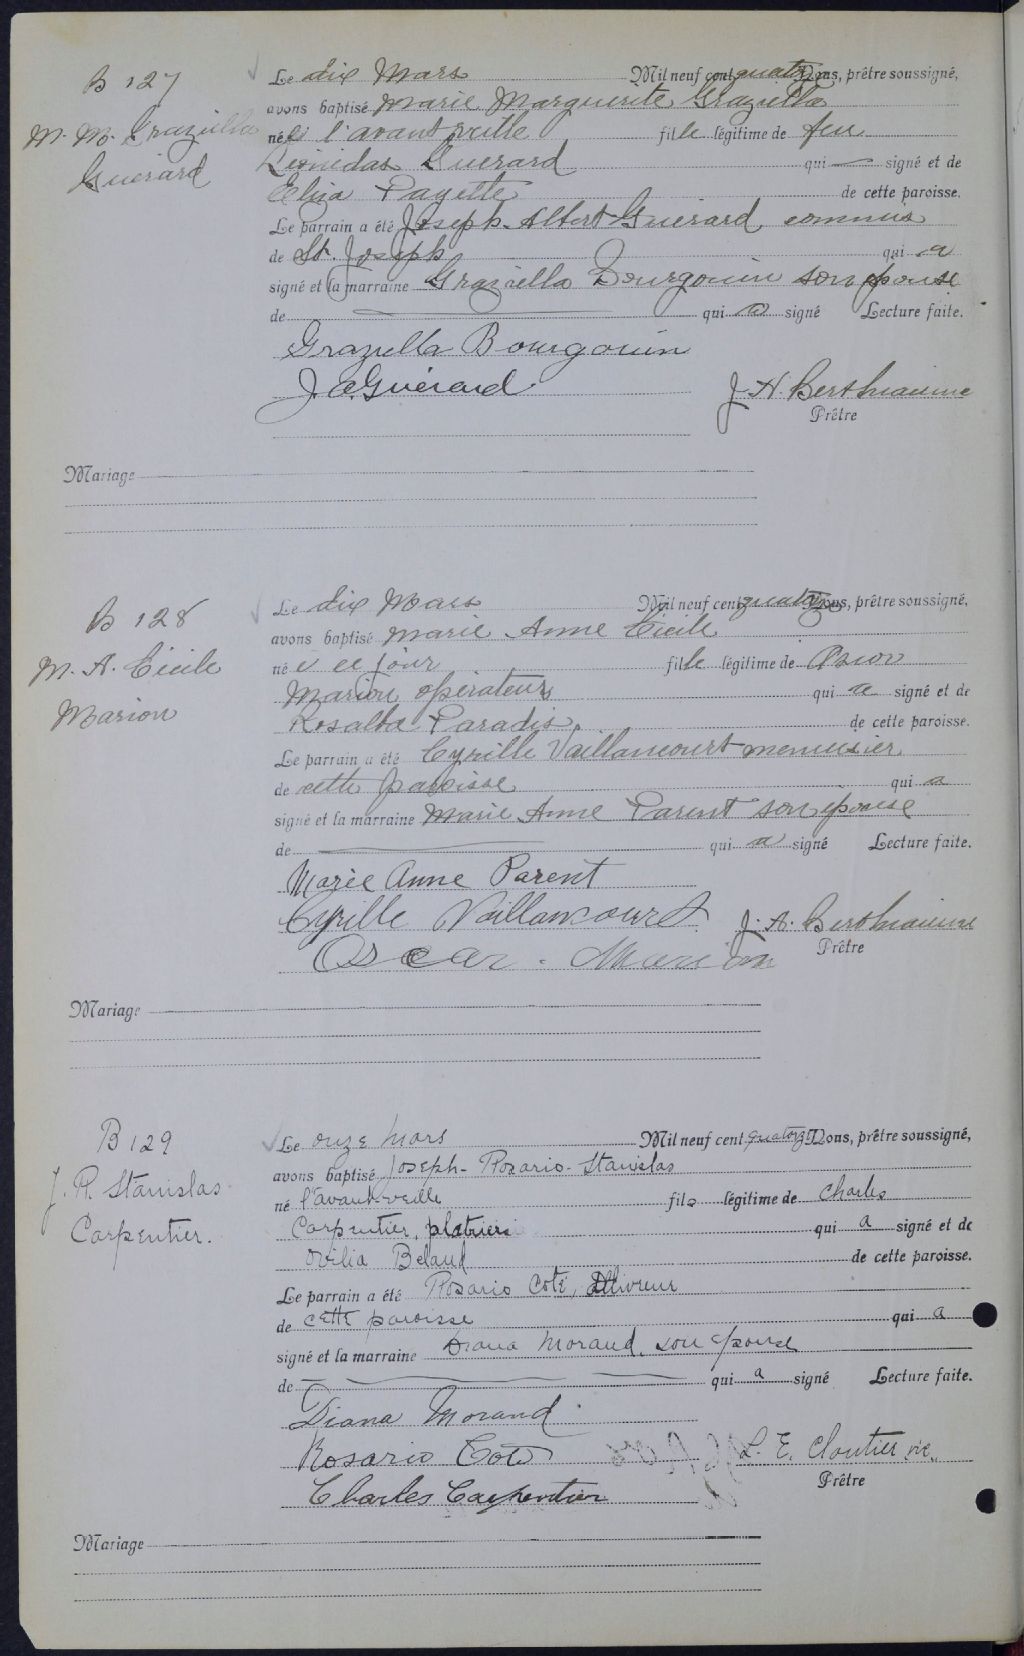 B 127
M. M. Graziella
Guérard
Le dix Mars Mil neuf cent quatorze Nous, prêtre soussigné,
avons baptisé Marie Marguerite Graziella
né e l'avant veille fille légitime de feu
Léonidas Guérard qui — signé et de
Eliza Payette de cette paroisse.
Le parrain a été Joseph-Albert Guérard commis
de St. Joseph qui a
signé et la marraine Graziella Bourgouin son épouse
de qui a signé Lecture faite.
Graziella Bourgouin
J. A. Guérard J. A. Berthiaume
Prêtre
Mariage
B 128
M. A. Cécile
Marion
Le dix Mars Mil neuf cent quatorze Nous, prêtre soussigné,
avons baptisé Marie Anne Cécile
né e ce jour fille légitime de Oscar
Marion opérateur qui a signé et de
Rosalba Paradis, de cette paroisse.
Le parrain a été Cyrille Vaillancourt menuisier
de cette paroisse qui a
signé et la marraine Marie Anne Parent son épouse
de qui a signé Lecture faite.
Marie Anne Parent
Cyrille Vaillancourt J. A. Berthiaume
Prêtre
Oscar. Marion
Mariage
B 129
J. R. Stanislas
Carpentier.
Le onze Mars Mil neuf cent quatorze Nous, prêtre soussigné,
avons baptisé Joseph-Rosario-Stanislas
né l'avant-veille fils légitime de Charles
Carpentier, platrier qui a signé et de
Ovilia Beland de cette paroisse.
Le parrain a été Rosario Coté,
de cette paroisse qui a
signé et la marraine Diana Morand, son épouse
de qui a signé Lecture faite.
Diana Morand
Rosario Coté L. E. Cloutier vic.
Prêtre
Charles Carpentier
Mariage